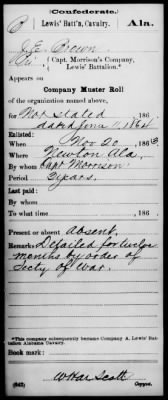 (Confederate.)
B Lewis' Batt'n, Cavalry. Ala.
J. E. Brown
Pvt, Capt. Morrison's Company,
Lewis' Battalion.*
Appears on
Company Muster Roll
of the organization named above,
for Not stated, 186 .
dated June 11, 1864
Enlisted:
When Nov 20, 1863
Where Newton Ala.
By whom Capt Morrison
Period 3 years.
Last paid:
By whom
To what time , 186 .
Present or absent Absent.
Remarks: Detailed for twelve
months by order of
Secty of War.
*This company subsequently became Company A, Lewis' Battalion Alabama Cavalry.
Book mark:
(642) W Har Scott
Copyist.